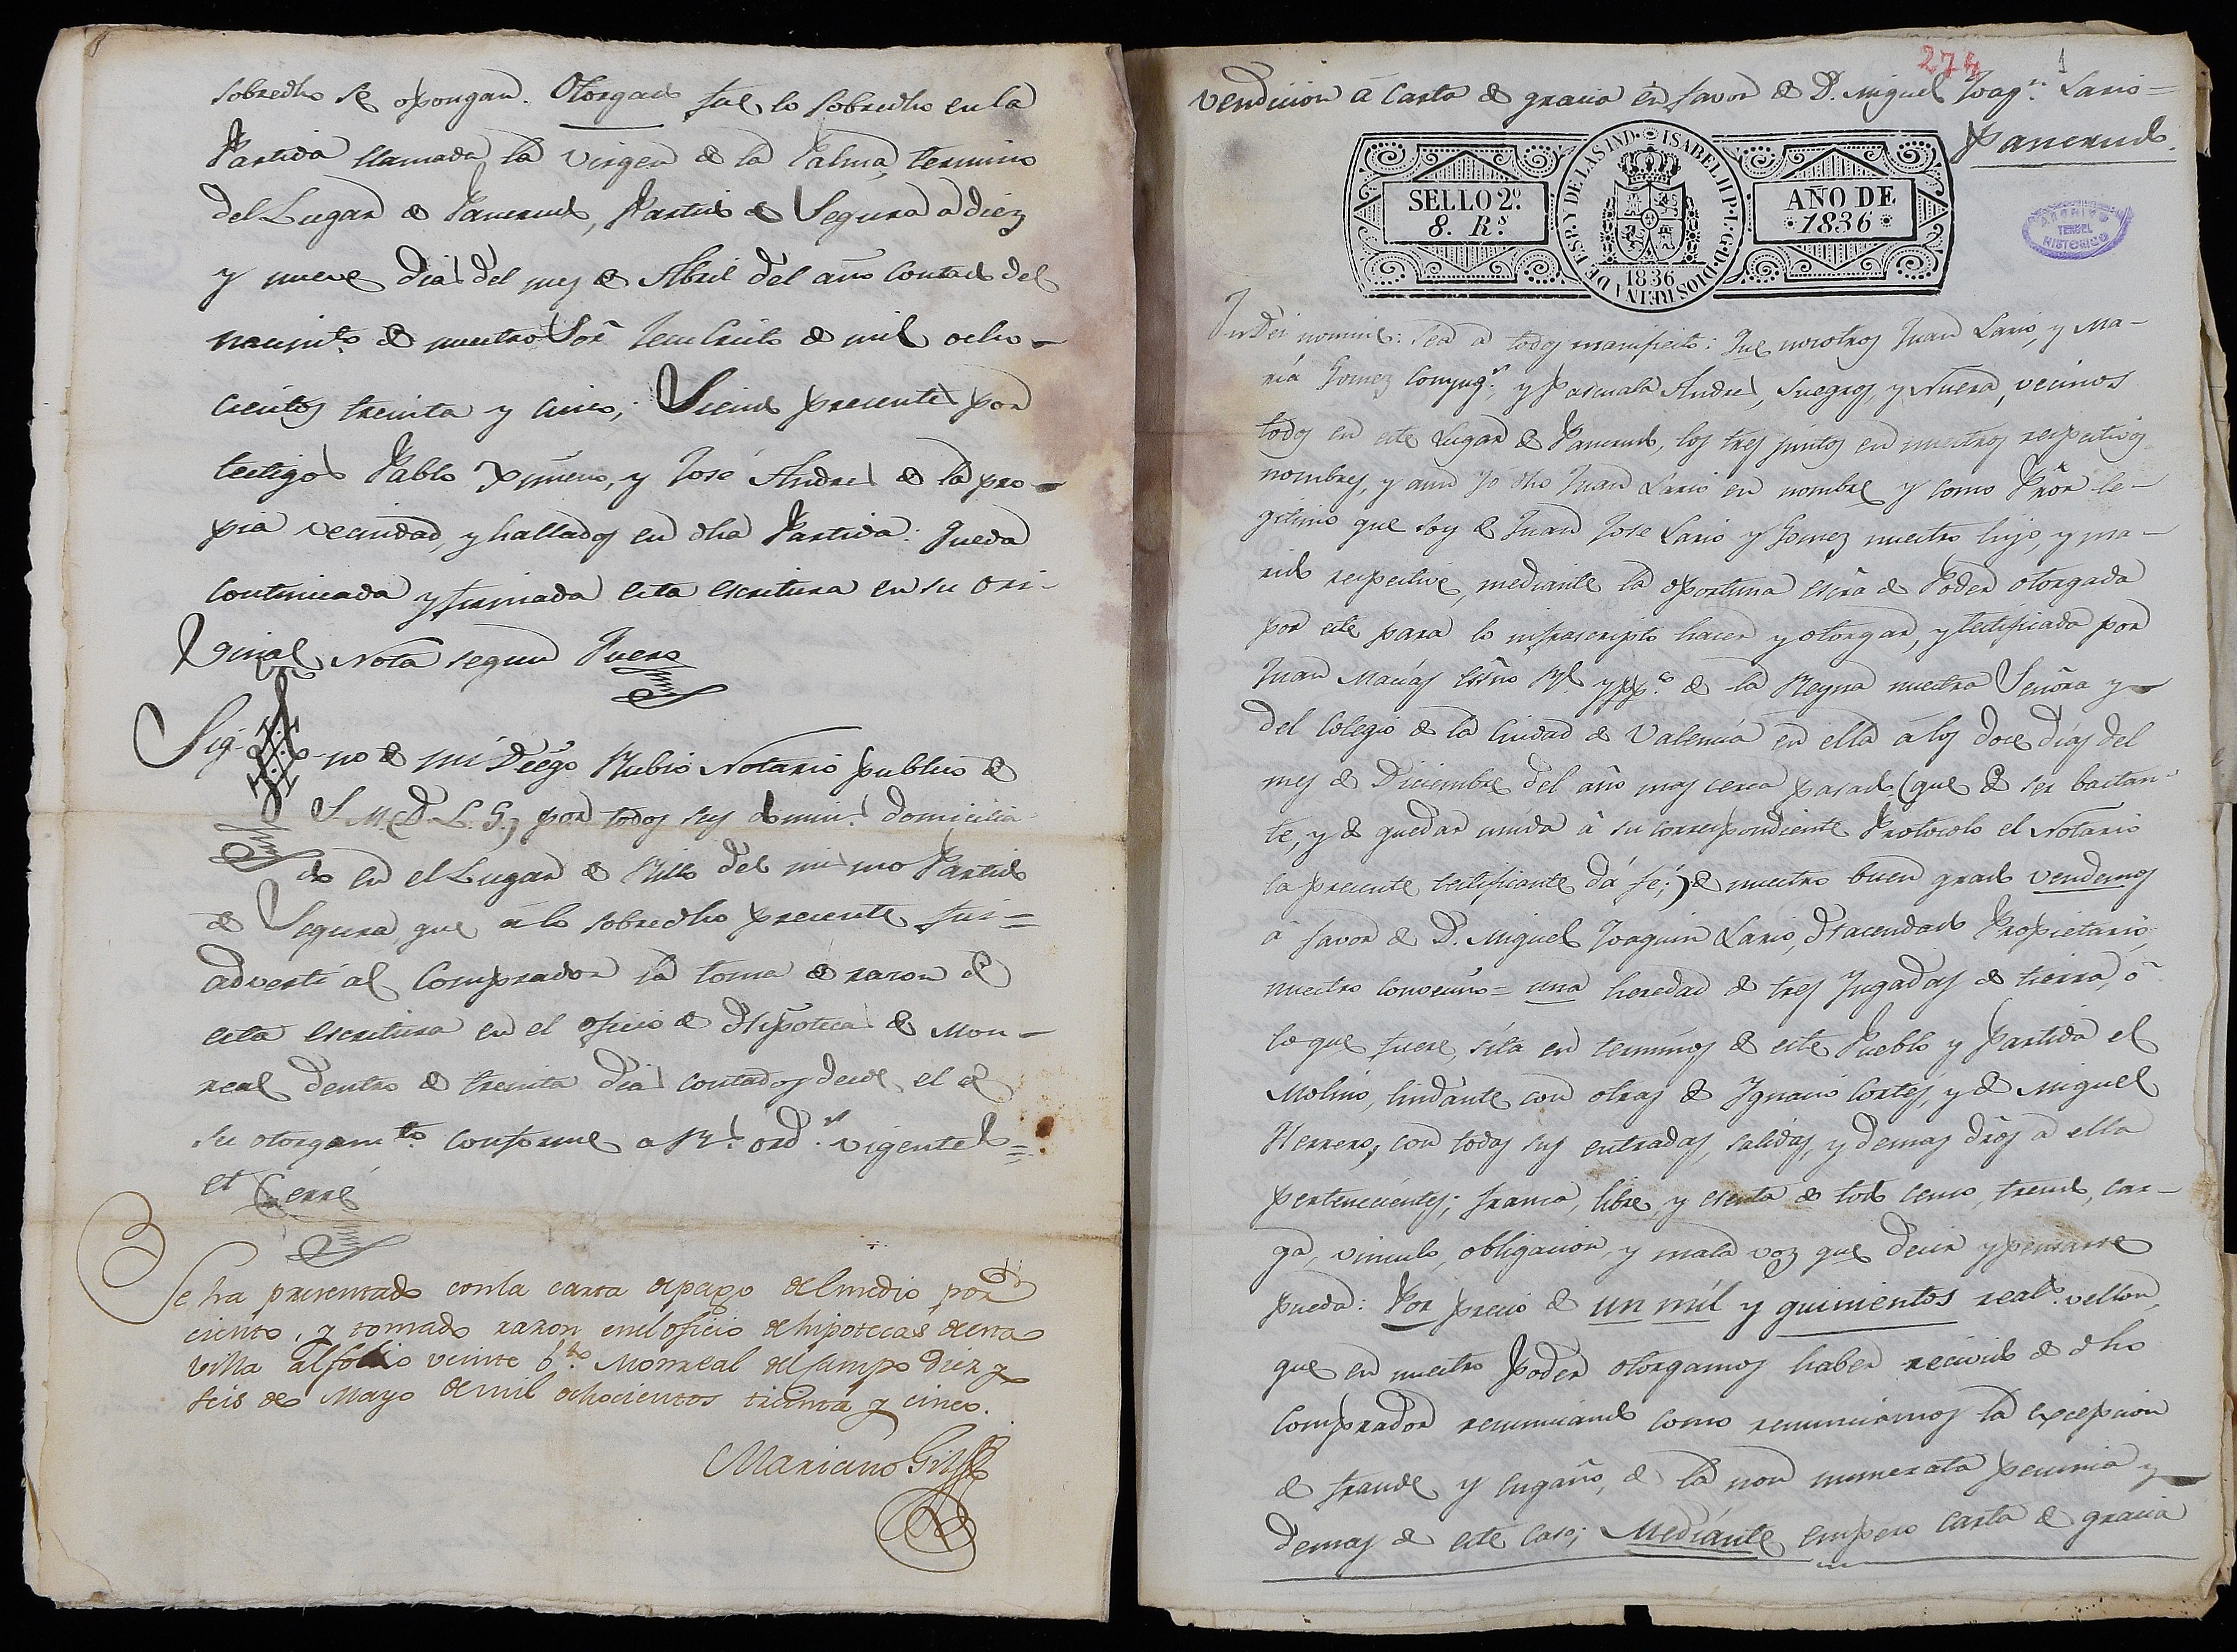 sobredho se opongan. Otorgado fue lo sobredho en la
Partida llamada la Virgen de la Palma, termino
del Lugar de Pancrudo, Partido de Segura a diez
y nueve dias del mes de Abril del año contado del
nacimto. de nuestro Sor. Jesuchristo de mil ocho-
cientos treinta y cinco; Siendo presentes por
testigos Pablo Ximeno, y José Andres de la pro-
pia vecindad, y hallados en dha Partida: Queda
continuada y firmada esta escritura en su ori-
ginal Nota segun Fuero
Sig-no de mi Diego Rubio Notario publico de
S. M. (D. L. G.) por todos sus domin.s domicilia-
do en el Lugar de Rillo del mismo Partido
de Segura que á lo sobredho presente fui=
advertí al Comprador la toma de razon de
esta escritura en el oficio de Hipotecas de Mon-
real dentro de treinta dias contados desde el de
su otorgamto. conforme a Rs. ords. vigentes=
et Cerré
Se ha presentado con la carta de pago del medio por
ciento, y tomado razon en el oficio de hipotecas de esta
Villa al folio veinte bto. Monreal del Campo diez y
seis de Mayo de mil ochocientos treinta y cinco.
Mariano Gil
274 1
Vendicion á Carta de gracia en favor de Dn. Miguel Joaqn. Lario=
Pancrudo.
SELLO 2º. 8. Rs.
ISABEL II P. L. G. D. DIOS REINA DE ESP. Y DE LAS IND.
1836
AÑO DE 1836
ARCHIVO HISTORICO TERUEL
In Dei nomine: Sea a todos manifiesto: Que nosotros Juan Lario, y Ma-
ría Gomez Conyugs. y Pascuala Andres, Suegros, y Nuera, vecinos
todos en este Lugar de Pancrudo, los tres juntos en nuestros respectivos
nombres, y aun Yo dho Juan Lario en nombre y como Pror le-
gitimo que soy de Juan Jose Lario y Gomez nuestro hijo, y ma-
rido respective, mediante la oportuna escra de Poder otorgada
por este para lo infrascripto hacer y otorgar, y testificada por
Juan Macías Essno Rl. y ppco. de la Reyna nuestra Señora y
del Colegio de la Ciudad de Valencia en ella á los doce días del
mes de Diciembre del año mas cerca pasado (que de ser bastan-
te, y de quedar unida á su correspondiente Protocolo el Notario
la presente testificante dá fé;) de nuestro buen grado vendemos
á favor de Dn. Miguel Joaquin Lario, Hacendado Propietario,
nuestro convecino= una heredad de tres Jugadas de tierra, ó
lo que fuere, sita en terminos de este Pueblo y Partida el
Molino, lindante con otras de Ignacio Cortes, y de Miguel
Herrero, con todas sus entradas, salidas, y demas dros a ella
pertenecientes; franca, libre, y esenta de todo censo, treudo, car-
ga, vinculo, obligacion, y mala voz que decir y pensarse
pueda: Por precio de un mil y quinientos reals. vellon,
que en nuestro poder otorgamos haber recivido de dho
Comprador renunciando como renunciamos la excepcion
de fraude y engaño, de la non numerata pecunia y
demas de este caso; Mediante empero carta de gracia